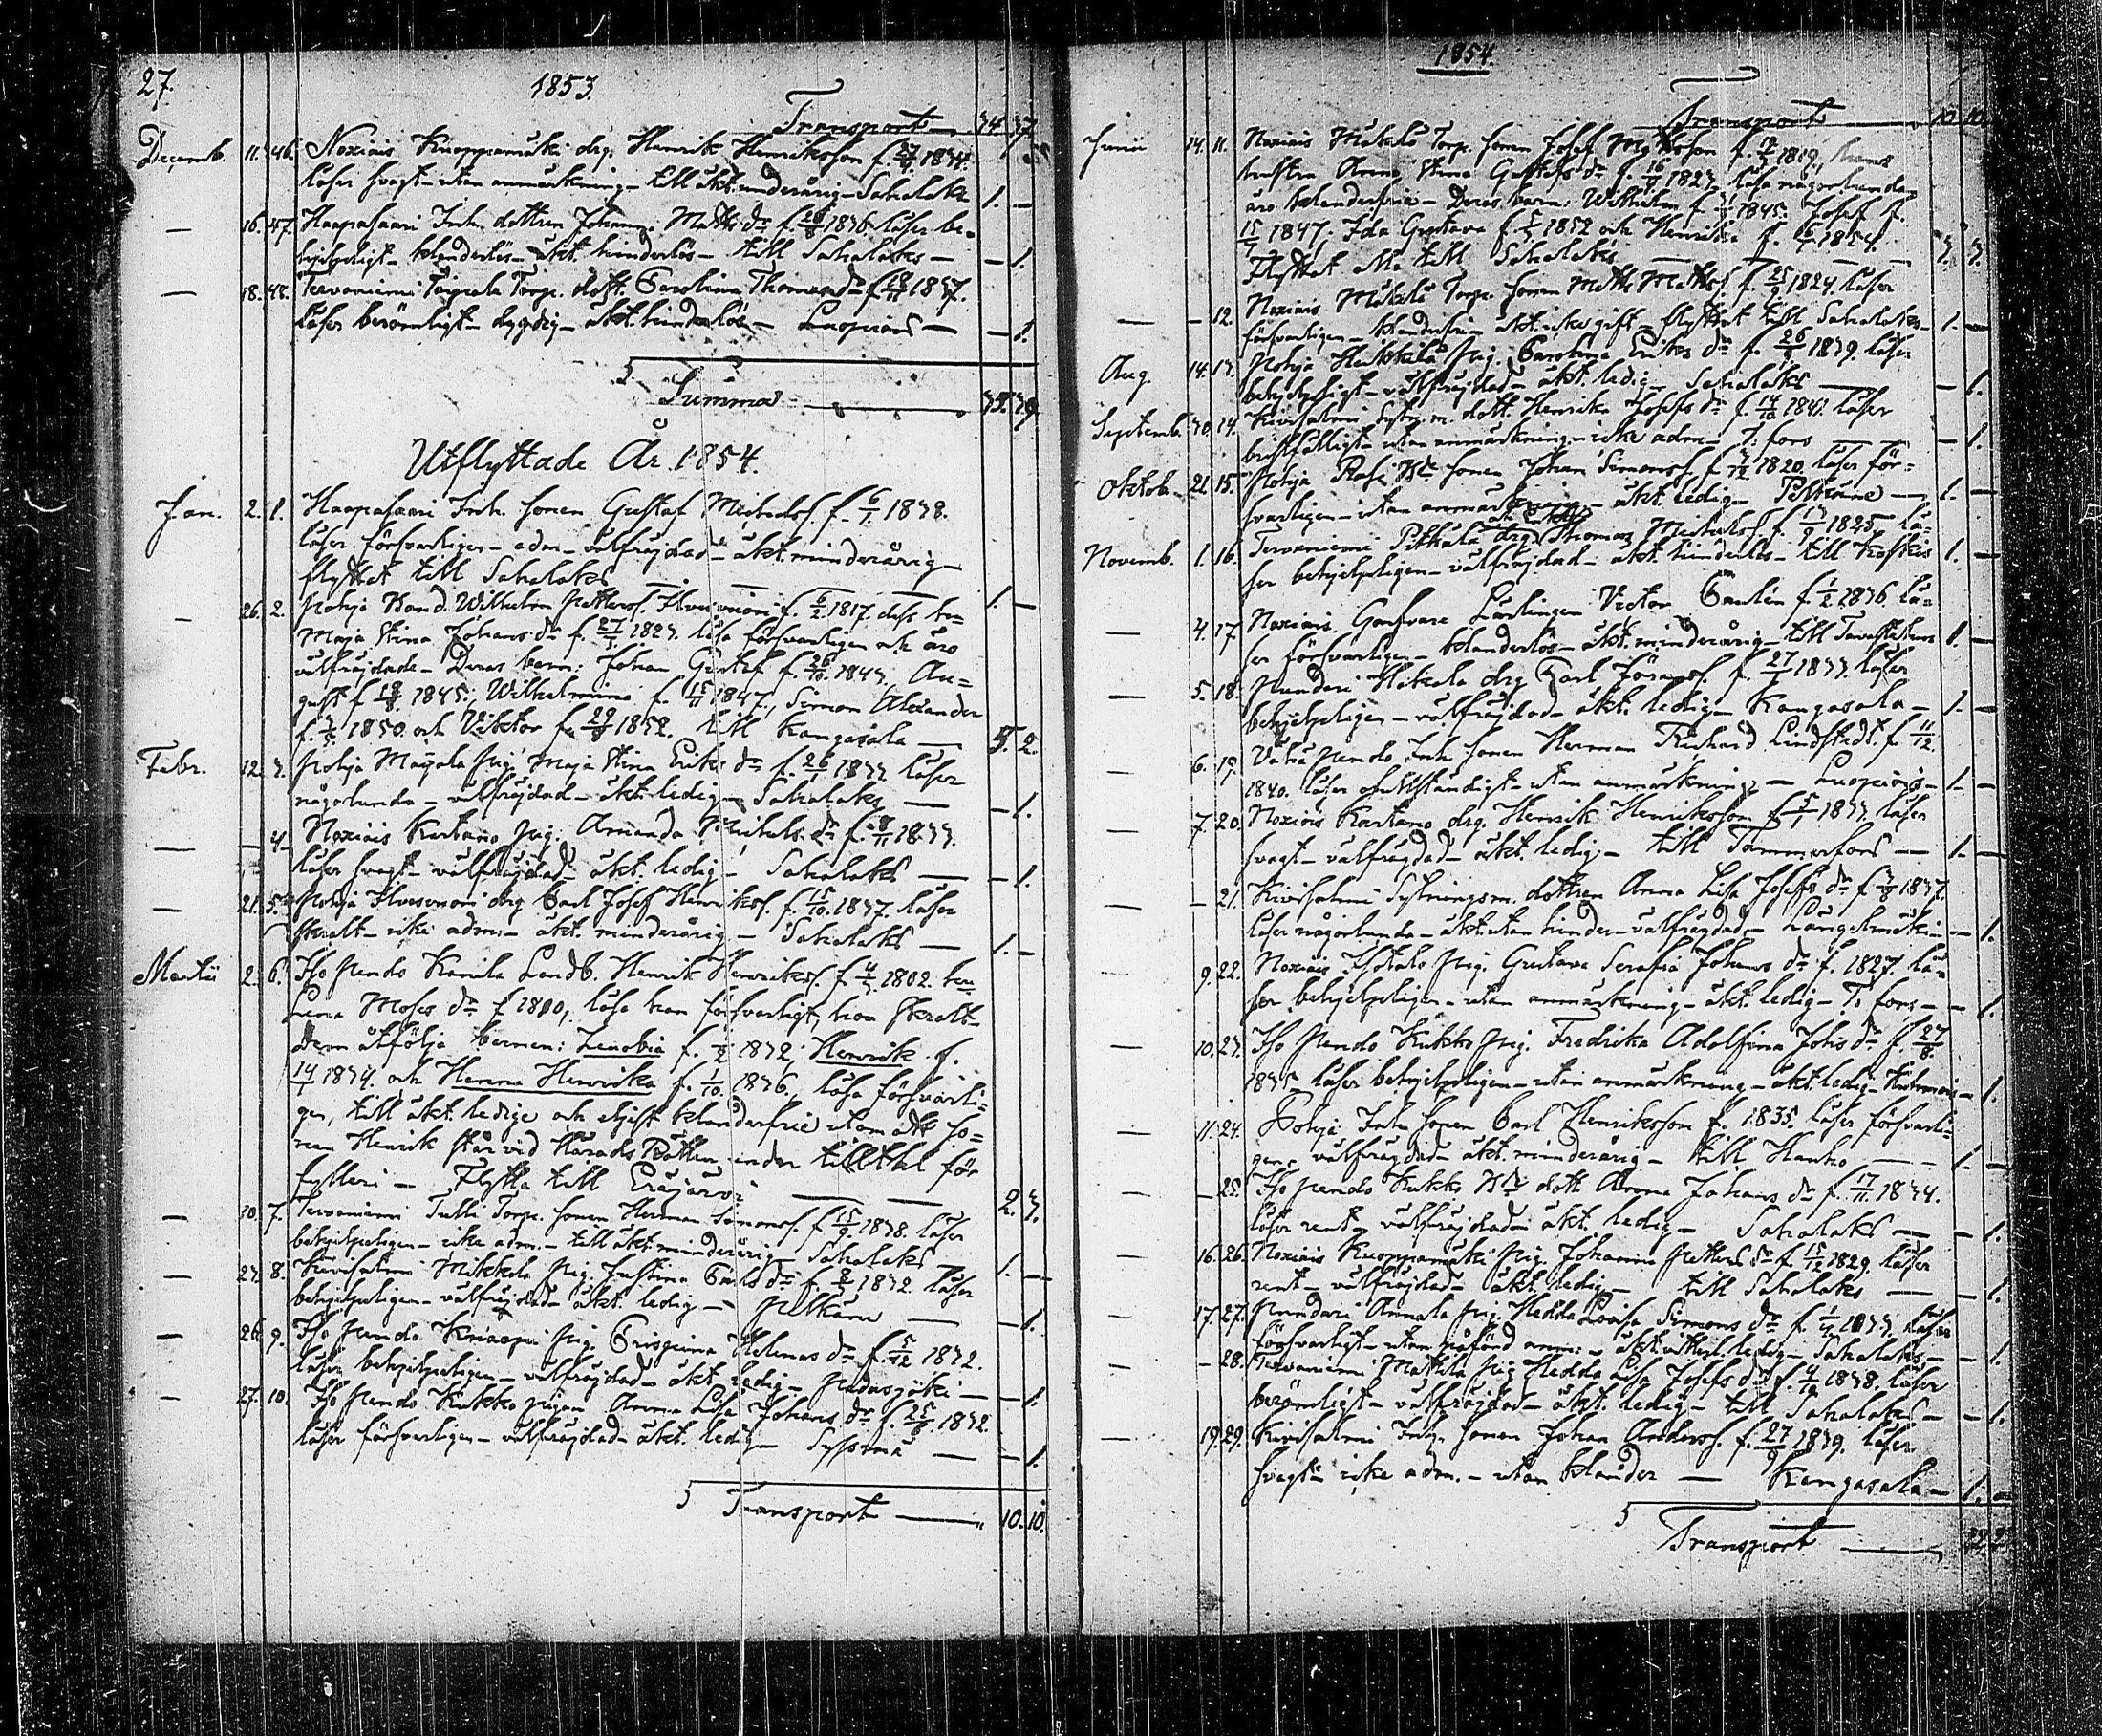 27.
1853.
Transport 34 37
Decemb. 11. 46. Noxiais Knuppamäki drg. Henrik Henriksson f. 1834.
läser svagt - utan anmärkning - till äkt. underårig - Sahalaks 1. —
— 16. 47. Haapasaari Inh. dottren Johanna Matts dr f. 1836. läser be-
hjelpligt - klanderlös - äkt. hinderlös - till Sahalaks — — 1.
— 18. 48. Tervaniemi Torp. dott. Carolina Thomas dr f. 1837.
läser berömligt - dygdig - äkt. hinderlös - Luopiois — — 1.
Summa 35. 39.
Utflyttade År 1854.
Jan. 2. 1. Haapasaari Inh. sonen Gustaf Michelss. f. 6/1 1838.
läser försvarligen - adm. - välfräjdad - äkt. minderårig -
flyttat till Sahalaks 1. —
— 26. 2. Pohja Bond. Wilhelm Petterss. f. 6/2 1817. dess hu
Maja Stina Johans dr f. 1823. läsa försvarligen och äro
välfräjdade - Deras barn: Johan Gustaf f. 26/10 1843, Au-
gust f. 1845; Wilhelmina f. 15/11 1847, Simon Alexander
f. 1850. och Viktor f. 1852. till Kangasala — 5. 2.
Febr. 12. 3. Pohja pig. Maja Stina Eriks dr f. 26/1 1833 läser
någorlunda - välfräjdad - äkt. ledig - Sahalaks — — 1.
— — 4. Noxiais Kartano pig. Amanda Michels dr f. 1833.
läser svagt - välfräjdad - äkt. ledig - Sahalaks — — 1.
— 21. 5. Pohja drg Carl Josef Henrikss. f. 15/10 1837. läser
skralt - icke adm. - äkt. minderårig - Sahalaks — 1. —
Martii 2. 6. Iso Pendo Kamila Landb. Henrik Henrikss. f. 1802. hu
Lena Moses dr f. 1800, läsa han försvarligt, hon skralt -
dem åtfölja barnen: Zenobia f. 1832, Henrik f.
1834. och Henna Henrika f. 1/10 1836, läsa försvarli-
gen, till äkt. ledige och eljest klanderfrie utom att so-
nen Henrik står vid Härads Rätten under tilltal för
fylleri - Flytta till Eräjärvi — — 2. 3.
— 10. 7. Tervaniemi Tulli Torp. sonen Herman Simonss. f. 15/9 1838. läser
behjelpligen - icke adm. - till äkt. minderårig - Sahalaks 1. —
— 23. 8. Kivisalmi Mikkola pig. Justina Carls dr f. 1832. läser
behjelpligen - välfräjdad - äkt. ledig - Pelkäne — — 1.
— 26. 9. Iso Pendo pig. Crispina Helenas dr f. 5/12 1832.
läser behjelpligen - välfräjdad - äkt. ledig - Padasjoki — — 1.
— 27. 10. Iso Pendo Kukko pigan Anna Lisa Johans dr f. 1832.
läser försvarligen - välfräjdad - äkt. ledig - Sysmä — — 1.
Transport 10. 10.
1854.
Transport 10. 10.
Junii 14. 11. Noxiais Mäkelä Torp. sonen Josef Mattsson f. 1819, hans
hustru Anna Stina Gustafs dr f. 1823, läsa någorlunda
äro klanderfrie - Deras barn: Wilhelm f. 1845. Josef f.
1847. Ida Gustava f. 1852 och Henrika f. 1854.
Flyttat alla till Sahalaks — — 3. 3.
— — 12. Noxiais Mäkelä Torp. sonen Matts Mattss. f. 1824. läser
försvarligen - klanderfri - äkt. icke gift - flyttat till Sahalaks 1. —
Aug. 14. 13. Pohja Heikkilä pig. Carolina Eriks dr f. 1839. läser
behjelpligt - välfräjdad - äkt. ledig - Sahalaks — — 1.
Septemb. 30. 14. Kivisalmi Sytn. m. dott. Henrika Josefs dr f. 14/10 1841. läser
bristfälligt - utan anmärkning - icke adm. - T: fors — — 1.
Oktob. 21. 15. Pohja sonen Johan Simonss. f. 1820. läser för-
svarligen - utan anmärkning - äkt. ledig - Pelkäne — 1. —
Novemb. 1. 16. Tervaniemi Pitkälä drg Thomas Michelss. f. 1825. lä-
ser behjelpligen - välfräjdad - äkt. hinderlös - till 1. —
— 4. 17. Noxiais Garfvare Lärlingen Victor f. 1836. lä-
ser försvarligen - klanderlös - äkt. minderårig - till Tavastehus 1. —
— 5. 18. Pundari Mikola drg Carl f. 1833. läser
behjelpligen - välfräjdad - äkt. ledig - Kangasala — 1. —
— 6. 19. Vähä Pendo Inh. sonen Herman Richard Lindstedt. f. 11/12
1840. läser ofullständigt - utan anmärkning - Luopiois 1. —
7. 20. Noxiais Kartano drg. Henrik Henriksson f. 1833. läser
svagt - välfräjdad - äkt. ledig - till Tammerfors — 1. —
— — 21. Kivisalmi Sytningsm. dottren Anna Lisa Josefs dr f. 1837.
läser någorlunda - äkt. utan hinder - välfräjdad - Längelmäki — 1.
— 9. 22. Noxiais Isotalo pig. Gustava Serafia Johans dr f. 1827. lä-
ser behjelpligen - utan anmärkning - äkt. ledig - T: fors — — 1.
— 10. 23. Iso Pendo Kukko pig. Fredrika Adolfina Johs dr f. 27/8
1835 läser behjelpligen - utan anmärkning - äkt. ledig - — 1.
— 11. 24. Pohja Inh. sonen Carl Henriksson f. 1835. läser försvarli-
gen - välfräjdad - äkt. minderårig - till Hauho — 1. —
— — 25. Iso Pendo Kukko dott Anna Johans dr f. 17/11 1834.
läser rent - välfräjdad - äkt. ledig - Sahalaks — — 1.
— 16. 26. Noxiais Knuppamäki pig. Johanna Petters dr f. 15/12 1829. läser
rent - välfräjdad - äkt. ledig - till Sahalaks — — 1.
— 17. 27. Pundari Annala pig. Hedda Lovisa Simons dr f. 1833. läser
försvarligt - utan påförd anm. - äkt. ledig - Sahalaks — — 1.
— — 28. Tervaniemi Mattila pig Hedda Lisa Josefs dr f. 1838. läser
berömligt - välfräjdad - äkt. ledig - till Sahalaks — — 1.
— 19. 29. Kivisalmi Inh. sonen Johan Anderss. f. 27/9 1839. läser
svagt - icke adm. - utan klander — Kangasala — 1. —
Transport